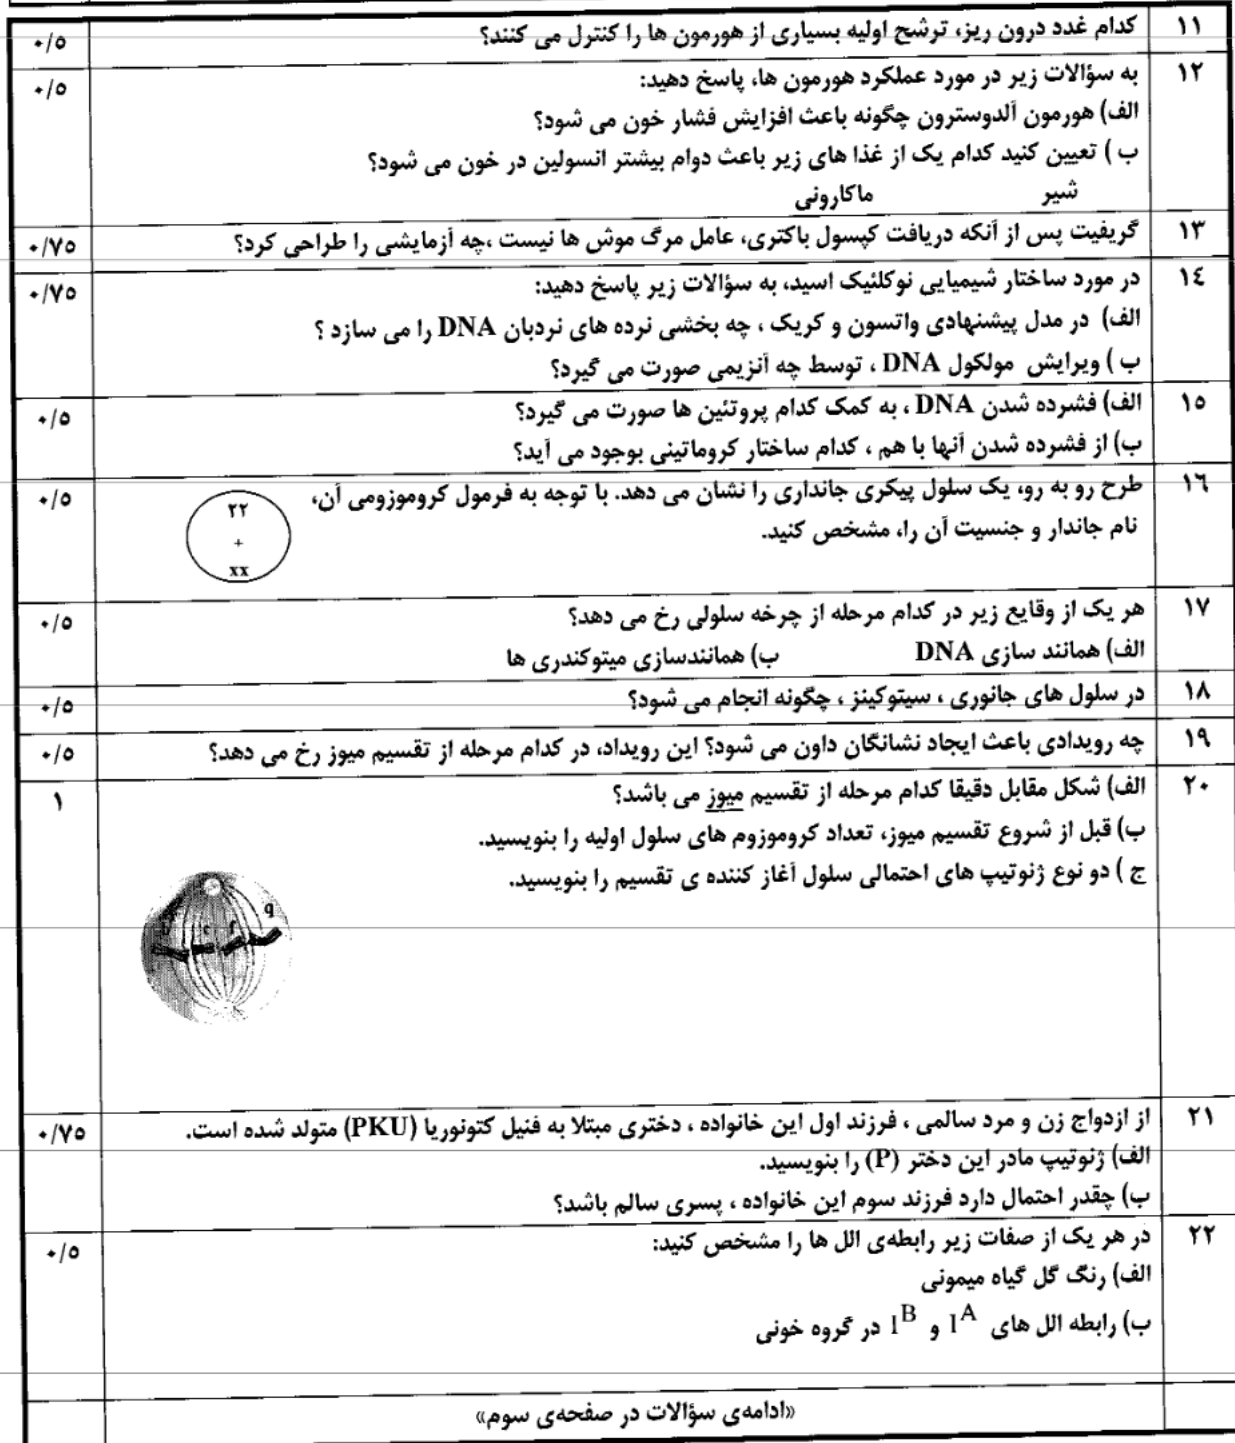 ۱۱ کدام غدد درون ریز، ترشح اولیه بسیاری از هورمون ها را کنترل می کنند؟ ۰/۵
۱۲ به سؤالات زیر در مورد عملکرد هورمون ها، پاسخ دهید: ۰/۵
الف) هورمون آلدوسترون چگونه باعث افزایش فشار خون می شود؟
ب ) تعیین کنید کدام یک از غذا های زیر باعث دوام بیشتر انسولین در خون می شود؟
شیر ماکارونی
۱۳ گریفیت پس از آنکه دریافت کپسول باکتری، عامل مرگ موش ها نیست ،چه آزمایشی را طراحی کرد؟ ۰/۷۵
۱٤ در مورد ساختار شیمیایی نوکلئیک اسید، به سؤالات زیر پاسخ دهید: ۰/۷۵
الف) در مدل پیشنهادی واتسون و کریک ، چه بخشی نرده های نردبان DNA را می سازد ؟
ب ) ویرایش مولکول DNA ، توسط چه آنزیمی صورت می گیرد؟
۱۵ الف) فشرده شدن DNA ، به کمک کدام پروتئین ها صورت می گیرد؟ ۰/۵
ب) از فشرده شدن آنها با هم ، کدام ساختار کروماتینی بوجود می آید؟
۱٦ طرح رو به رو، یک سلول پیکری جانداری را نشان می دهد. با توجه به فرمول کروموزومی آن، ۰/۵
نام جاندار و جنسیت آن را، مشخص کنید.
۲۲
+
xx
۱۷ هر یک از وقایع زیر در کدام مرحله از چرخه سلولی رخ می دهد؟ ۰/۵
الف) همانند سازی DNA ب) همانندسازی میتوکندری ها
۱۸ در سلول های جانوری ، سیتوکینز ، چگونه انجام می شود؟ ۰/۵
۱۹ چه رویدادی باعث ایجاد نشانگان داون می شود؟ این رویداد، در کدام مرحله از تقسیم میوز رخ می دهد؟ ۰/۵
۲۰ الف) شکل مقابل دقیقا کدام مرحله از تقسیم میوز می باشد؟ ۱
ب) قبل از شروع تقسیم میوز، تعداد کروموزوم های سلول اولیه را بنویسید.
ج ) دو نوع ژنوتیپ های احتمالی سلول آغاز کننده ی تقسیم را بنویسید.
c f g
۲۱ از ازدواج زن و مرد سالمی ، فرزند اول این خانواده ، دختری مبتلا به فنیل کتونوریا (PKU) متولد شده است. ۰/۷۵
الف) ژنوتیپ مادر این دختر (P) را بنویسید.
ب) چقدر احتمال دارد فرزند سوم این خانواده ، پسری سالم باشد؟
۲۲ در هر یک از صفات زیر رابطه‌ی الل ها را مشخص کنید: ۰/۵
الف) رنگ گل گیاه میمونی
ب) رابطه الل های I^A و I^B در گروه خونی
«ادامه‌ی سؤالات در صفحه‌ی سوم»